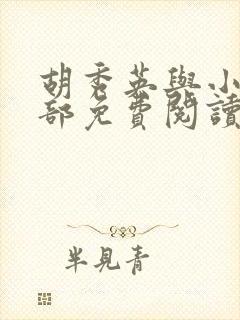 胡秀英與小
部免費閱讀
半見青